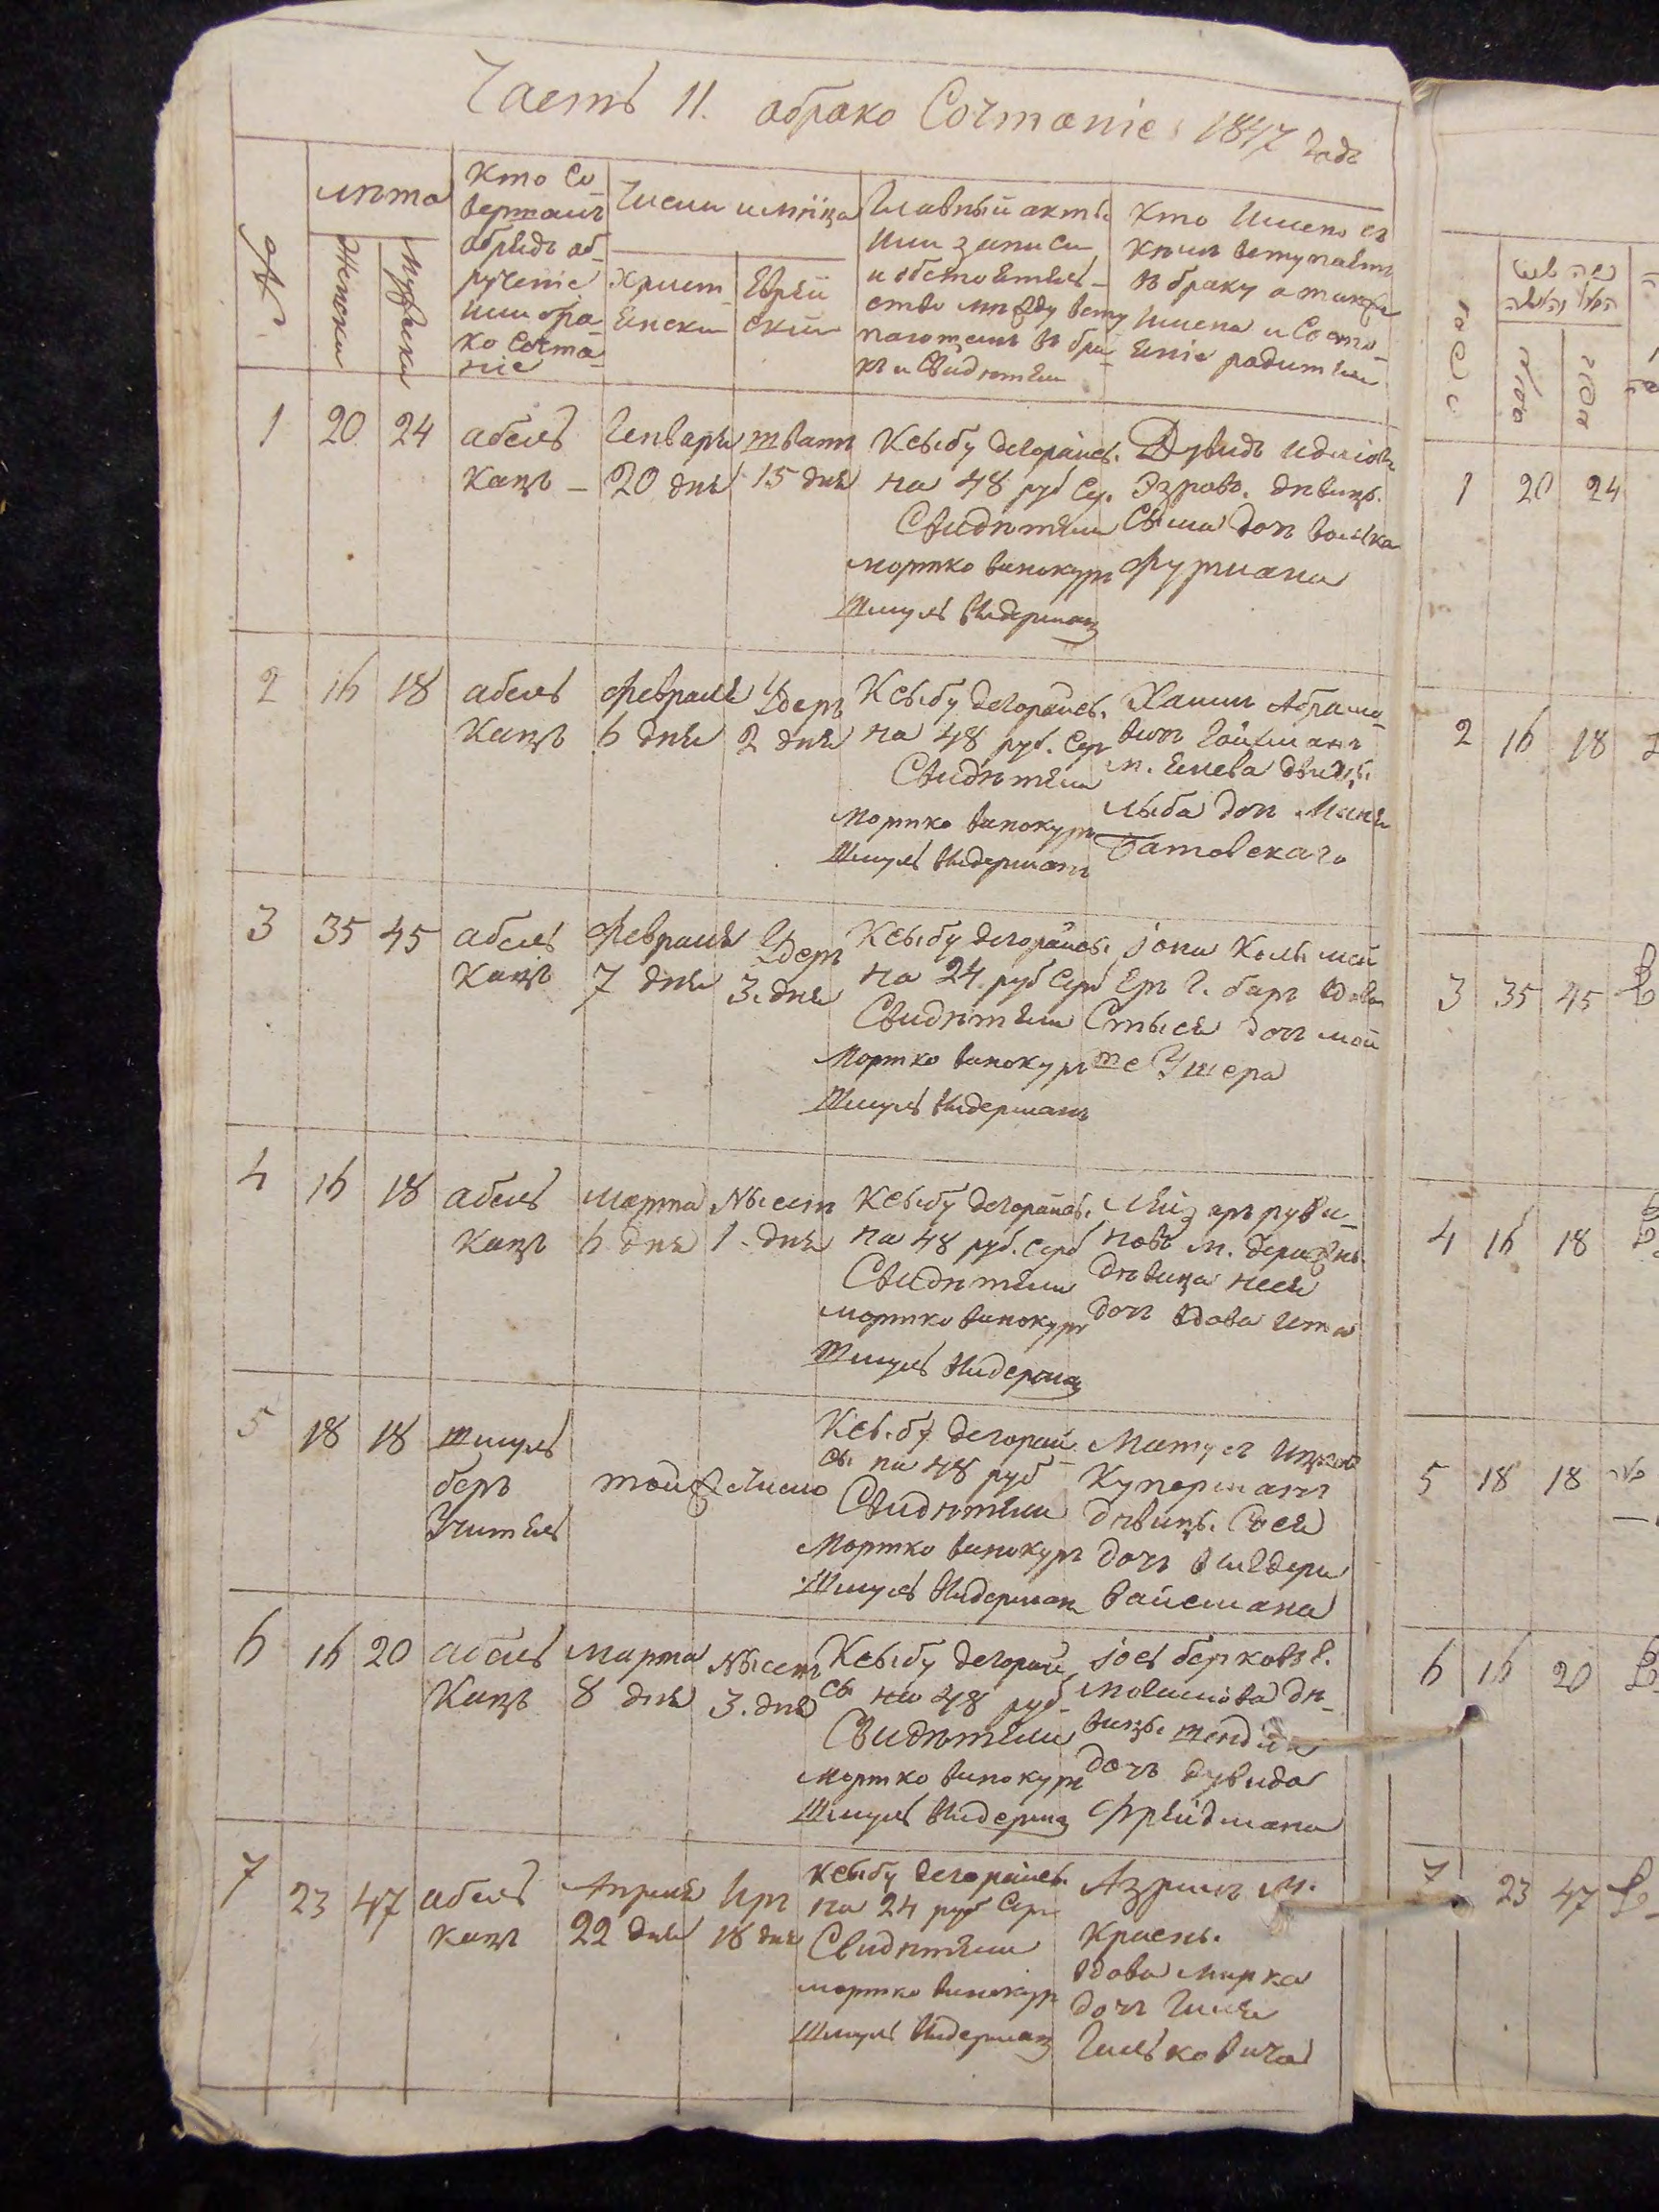 Часть II. абрако Сочтаніе 1847 Годъ
№
лѣта
Женски
Мужески
Кто Со-
вершалъ
обрядъ об-
рученіе
или бра-
ко Сочта-
ніе
Числи и мѣсяца
Христ-
Еински
Еврей
скій
Главный актъ
или записи
и обстоятель-
ство между всту
пающеми в бра-
къ и Свидѣтели
Кто Имено съ
кѣмъ вступаетъ
въ браку а также
Имена и Состо-
еніе радители
1 20 24
абель
Кацъ
Генваря
20 дня
шватъ
15 дня
Ксыбу дегорайсы
на 48 руб Сер.
Свидѣтели
Мортко винокуръ
Шмуль Нидерманъ
Дувидъ
Эзровъ. дѣвицы.
дочъ волька
Фурмана
2 16 18
абель
Кацъ
Февраля
6 дня
Удеръ
2 дня
Ксыбу дегорайсы.
на 48 руб. Сер
Свидѣтели
Мортко винокуръ
Шмуль Нидерманъ
Хаимъ Абрамо-
вичъ Гойхманъ
м. дѣвицы.
лыба доч
Батовскаго
3 35 45
абель
Кацъ
Февраля
7 дня
Удеръ
3. дня
Ксыбу дегорайсы
на 24 руб Сер
Свидѣтели
Мортко винокуръ
Шмуль Нидерманъ
Іона Коль мей
Еръ г. баръ вдова
Стыся дочъ мой
ше Ушера
4 16 18
абель
Кацъ
Марта
6 дня
Нысетъ
1. дня
Ксыбу дегорайсы.
на 48 руб. Сереб
Свидѣтели
Мортко винокуръ
Шмуль Нидерманъ
Лейзеръ руви-
новъ м. деражнь.
дѣвица неся
дочъ вдова Ита
5 18 18
Шмуль
беръ
Учитель
тойже число
Ксы.бу дегорай
сы на 48 руб
Свидѣтели
Мортко винокуръ
Шмуль Нидерман
Матусъ Ицков
Куперманъ
дѣвицы. Сося
дочъ
вайсмана
6 16 20
абель
Кацъ
Марта
8 дня
Нысетъ
3. дня
Ксыбу дегорай
сы на 48 руб
Свидѣтели
Мортко винокуръ
Шмуль Нидерманъ
Іось берковъ г.
могилиова дѣ-
вицы. шендля
дочъ дувида
Фрейдмана
7 23 47
абель
Кацъ
Апреля
22 дня
Иръ
18 дня
Ксыбу дегорайсы.
на 24 руб Сер
Свидѣтели
Мортко винокуръ
Шмуль Нидерманъ
Азриль м.
Краснь.
вдова мирка
дочъ Гиля
Гильковича
1 20 24
2 16 18
3 35 45
4 16 18
5 18 18
6 16 20
7 23 47